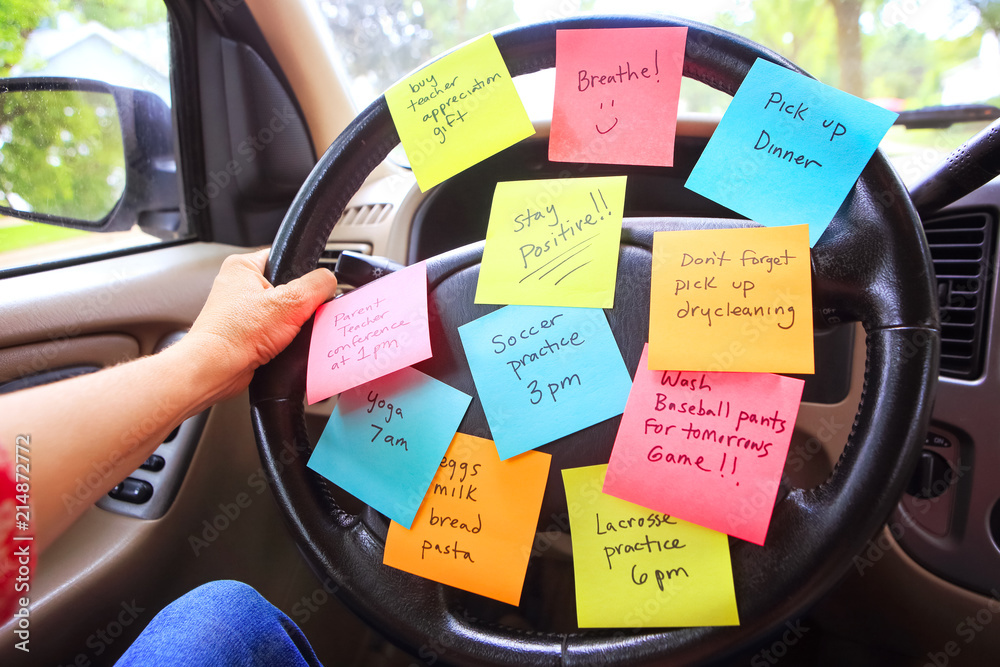 buy
teacher
appreciation
gift
Breathe!
Pick up
Dinner
Stay
Positive!!
Don't forget
pick up
drycleaning
Parent
Teacher
conference
at 1pm
Soccer
practice
3pm
Wash
Baseball pants
For tomorrows
Game!!
Yoga
7am
eggs
milk
bread
pasta
Lacrosse
practice
6pm
Adobe Stock | #214872772